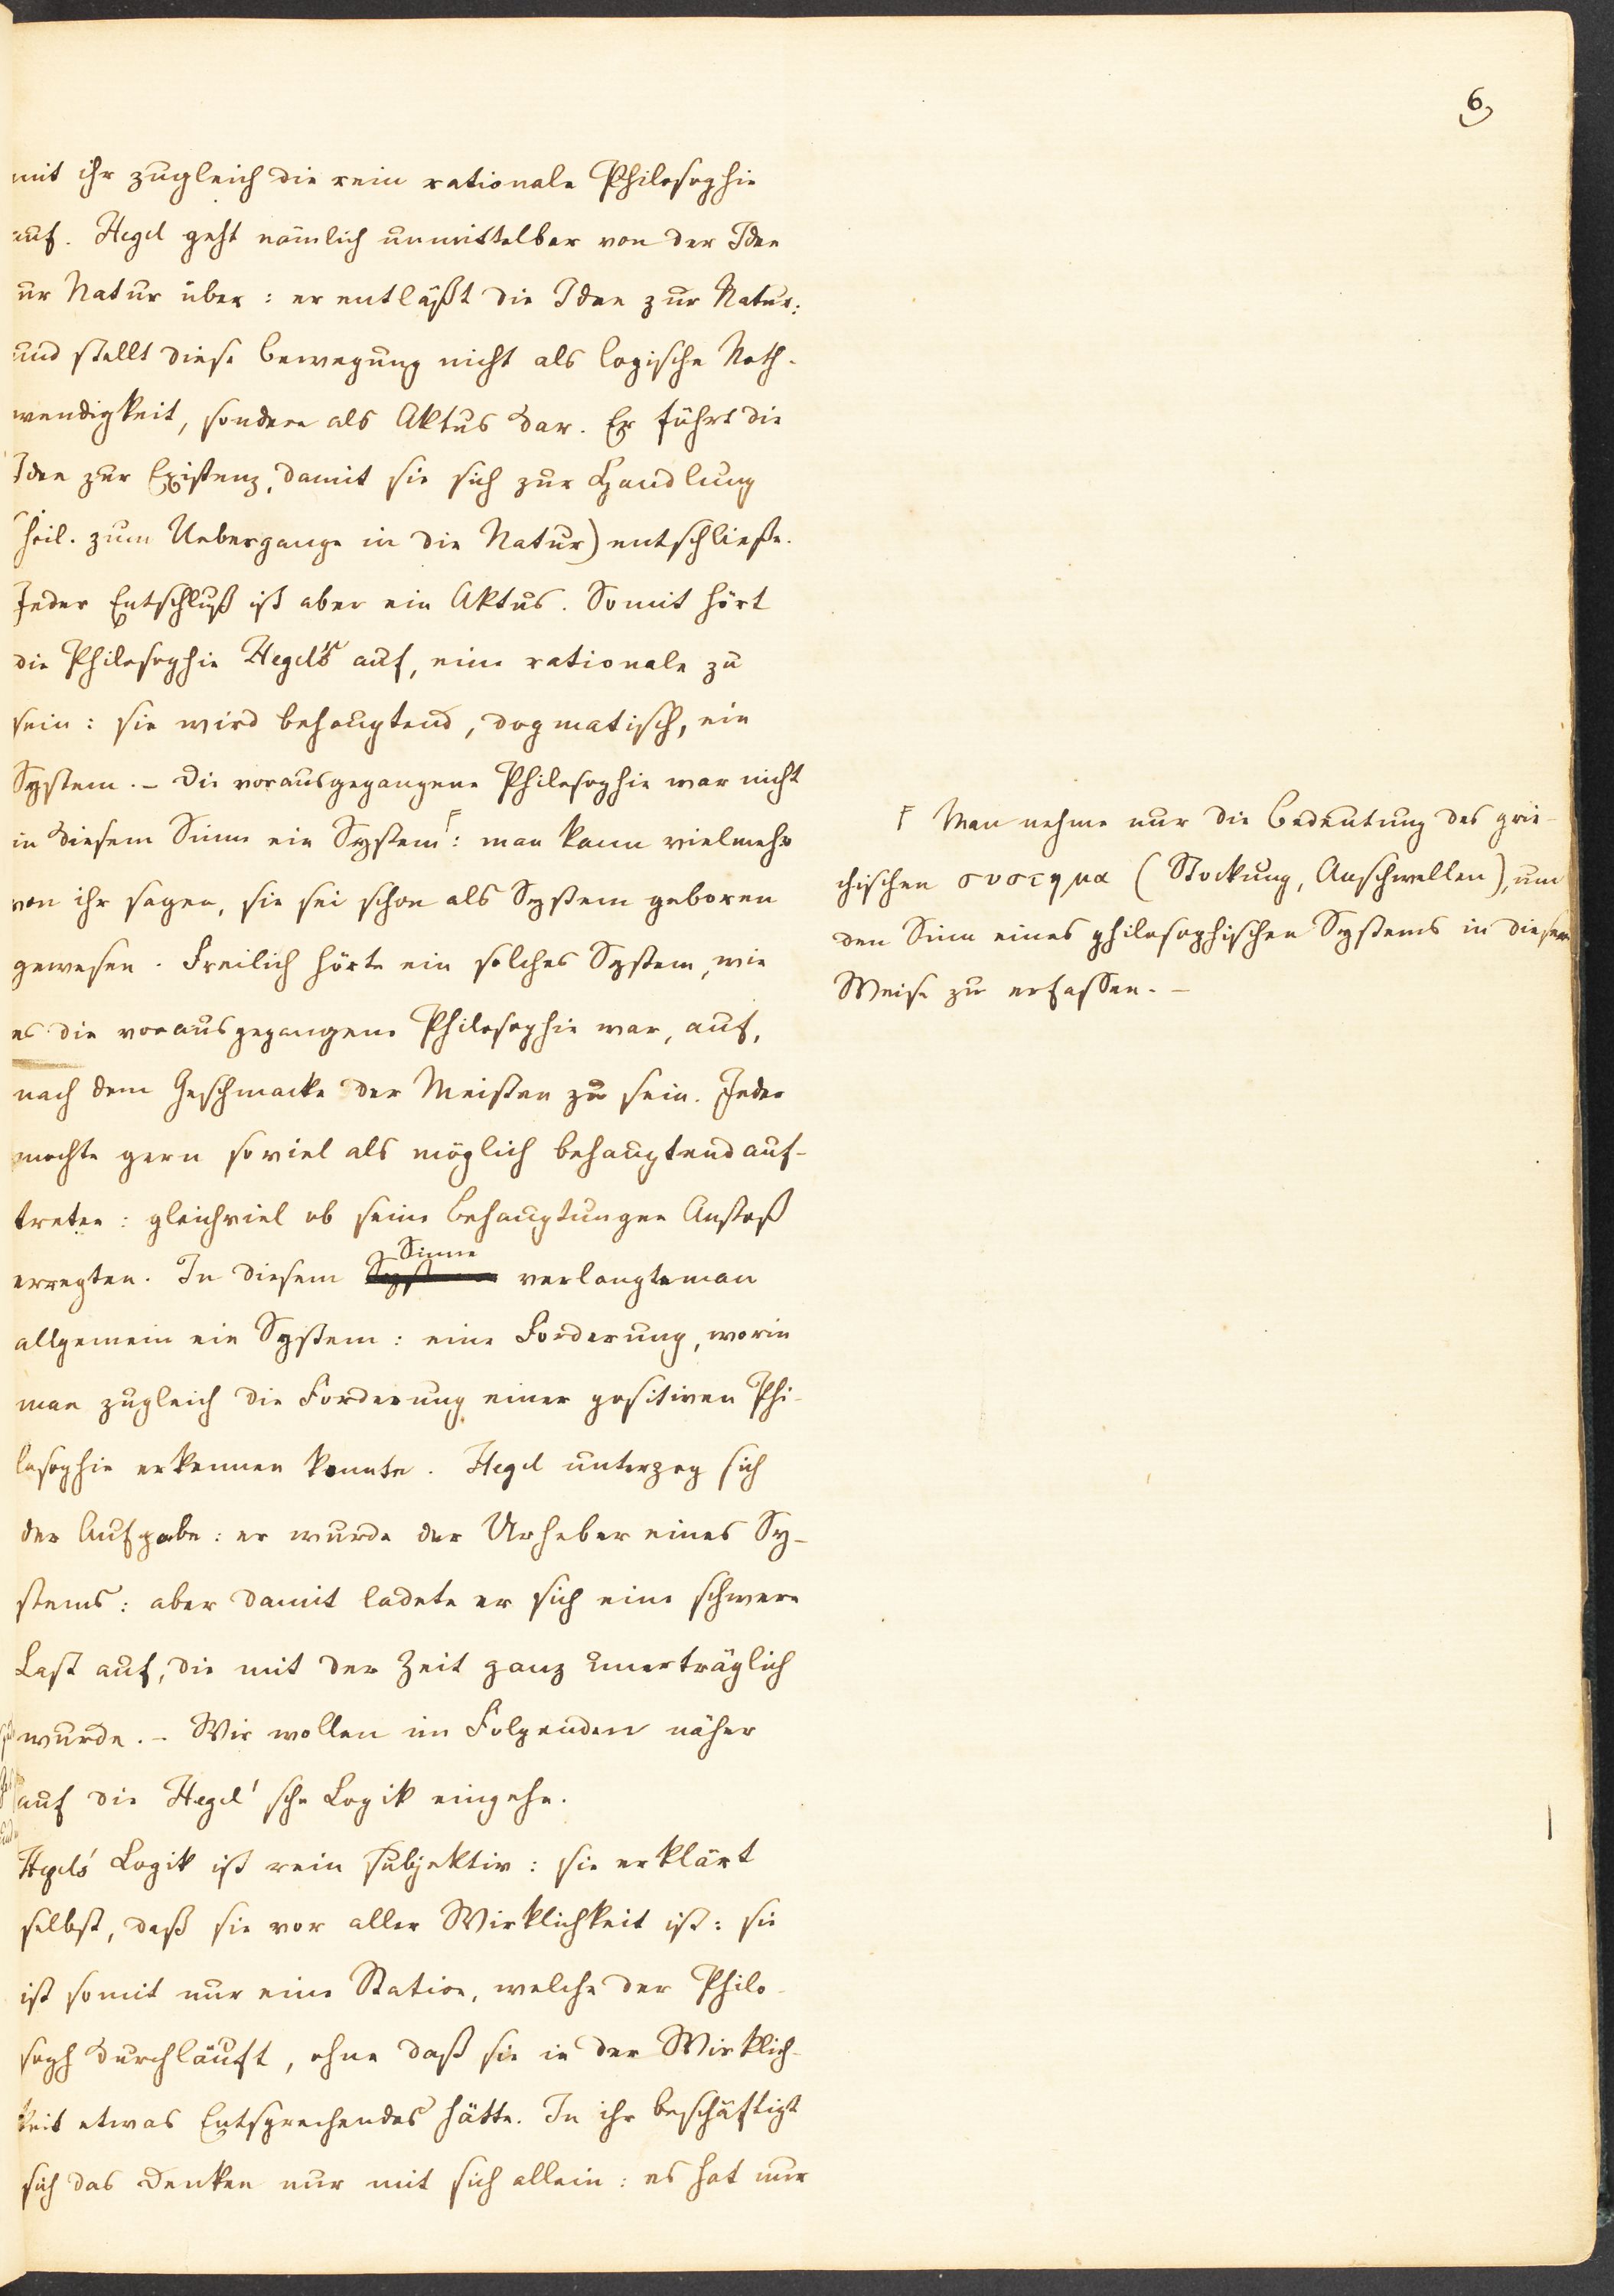 6
mit ihr zugleich die rein rationale Philosophie
auf. Hegel geht nämlich unmittelbar von der Idee
ur Natur über: er entläßt die Idee zur Natur:
und stellt diese Bewegung nicht als logische Noth-
wendigkeit, sondern als Aktus dar. Er führt die
Idee zur Existenz, damit sie sich zur Handlung
(seil. zum Uebergange in die Natur) entschließe.
Jeder Entschluß ist aber ein Aktus. Somit hört
die Philosophie Hegel's auf, eine rationale zu
sein: sie wird behauptend, dogmatisch, ein
System. – Die vorausgegangene Philosophie war nicht
in diesem Sinne ein System Ꞙ: man kann vielmehr
von ihr sagen, sie sei schon als System geboren
gewesen. Freilich hörte ein solches System, wie
es die vorausgegangene Philosophie war, auf,
nach dem Geschmacke der Meisten zu sein. Jeder
mochte gern soviel als möglich behauptend auf-
treten: gleichviel ob seine Behauptungen Anstoß
erregten. In diesem Sinne verlangte man
allgemein ein System: eine Forderung, worin
man zugleich die Forderung einer positiven Phi-
losophie erkennen konnte. Hegel unterzog sich
der Aufgabe: er wurde der Urheber eines Sy-
stems: aber damit ladete er sich eine schwere
Last auf, die mit der Zeit ganz unerträglich
wurde. – Wir wollen im Folgenden näher
auf die Hegel'sche Logik eingehe.
Hegels' Logik ist rein subjektiv: sie erklärt
selbst, daß sie vor aller Wirklichkeit ist: sie
ist somit nur eine Station, welche der Philo-
soph durchläuft, ohne daß sie in der Wirklich-
keit etwas Entsprechendes hätte. In ihr beschäftigt
sich das Denken nur mit sich allein: es hat nur
Ꞙ Man nehme nur die Bedeutung des grie-
chischen συστημα (Stockung, Anschwellen), um
den Sinn eines philosophischen Systems in dieser
Weise zu erfassen. –